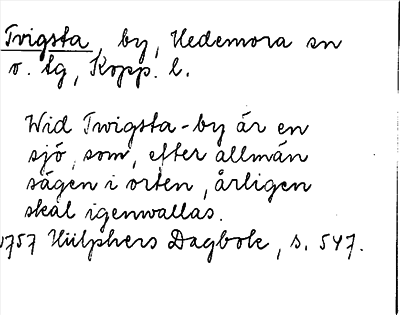 Tvigsta, by, Hedemora sn
o. tg, Kopp. l.
Wid Twigsta-by är en
sjö, som, efter allmän
sägen i orten, årligen
skal igenwallas.
1757 Hülphers Dagbok, s. 547.